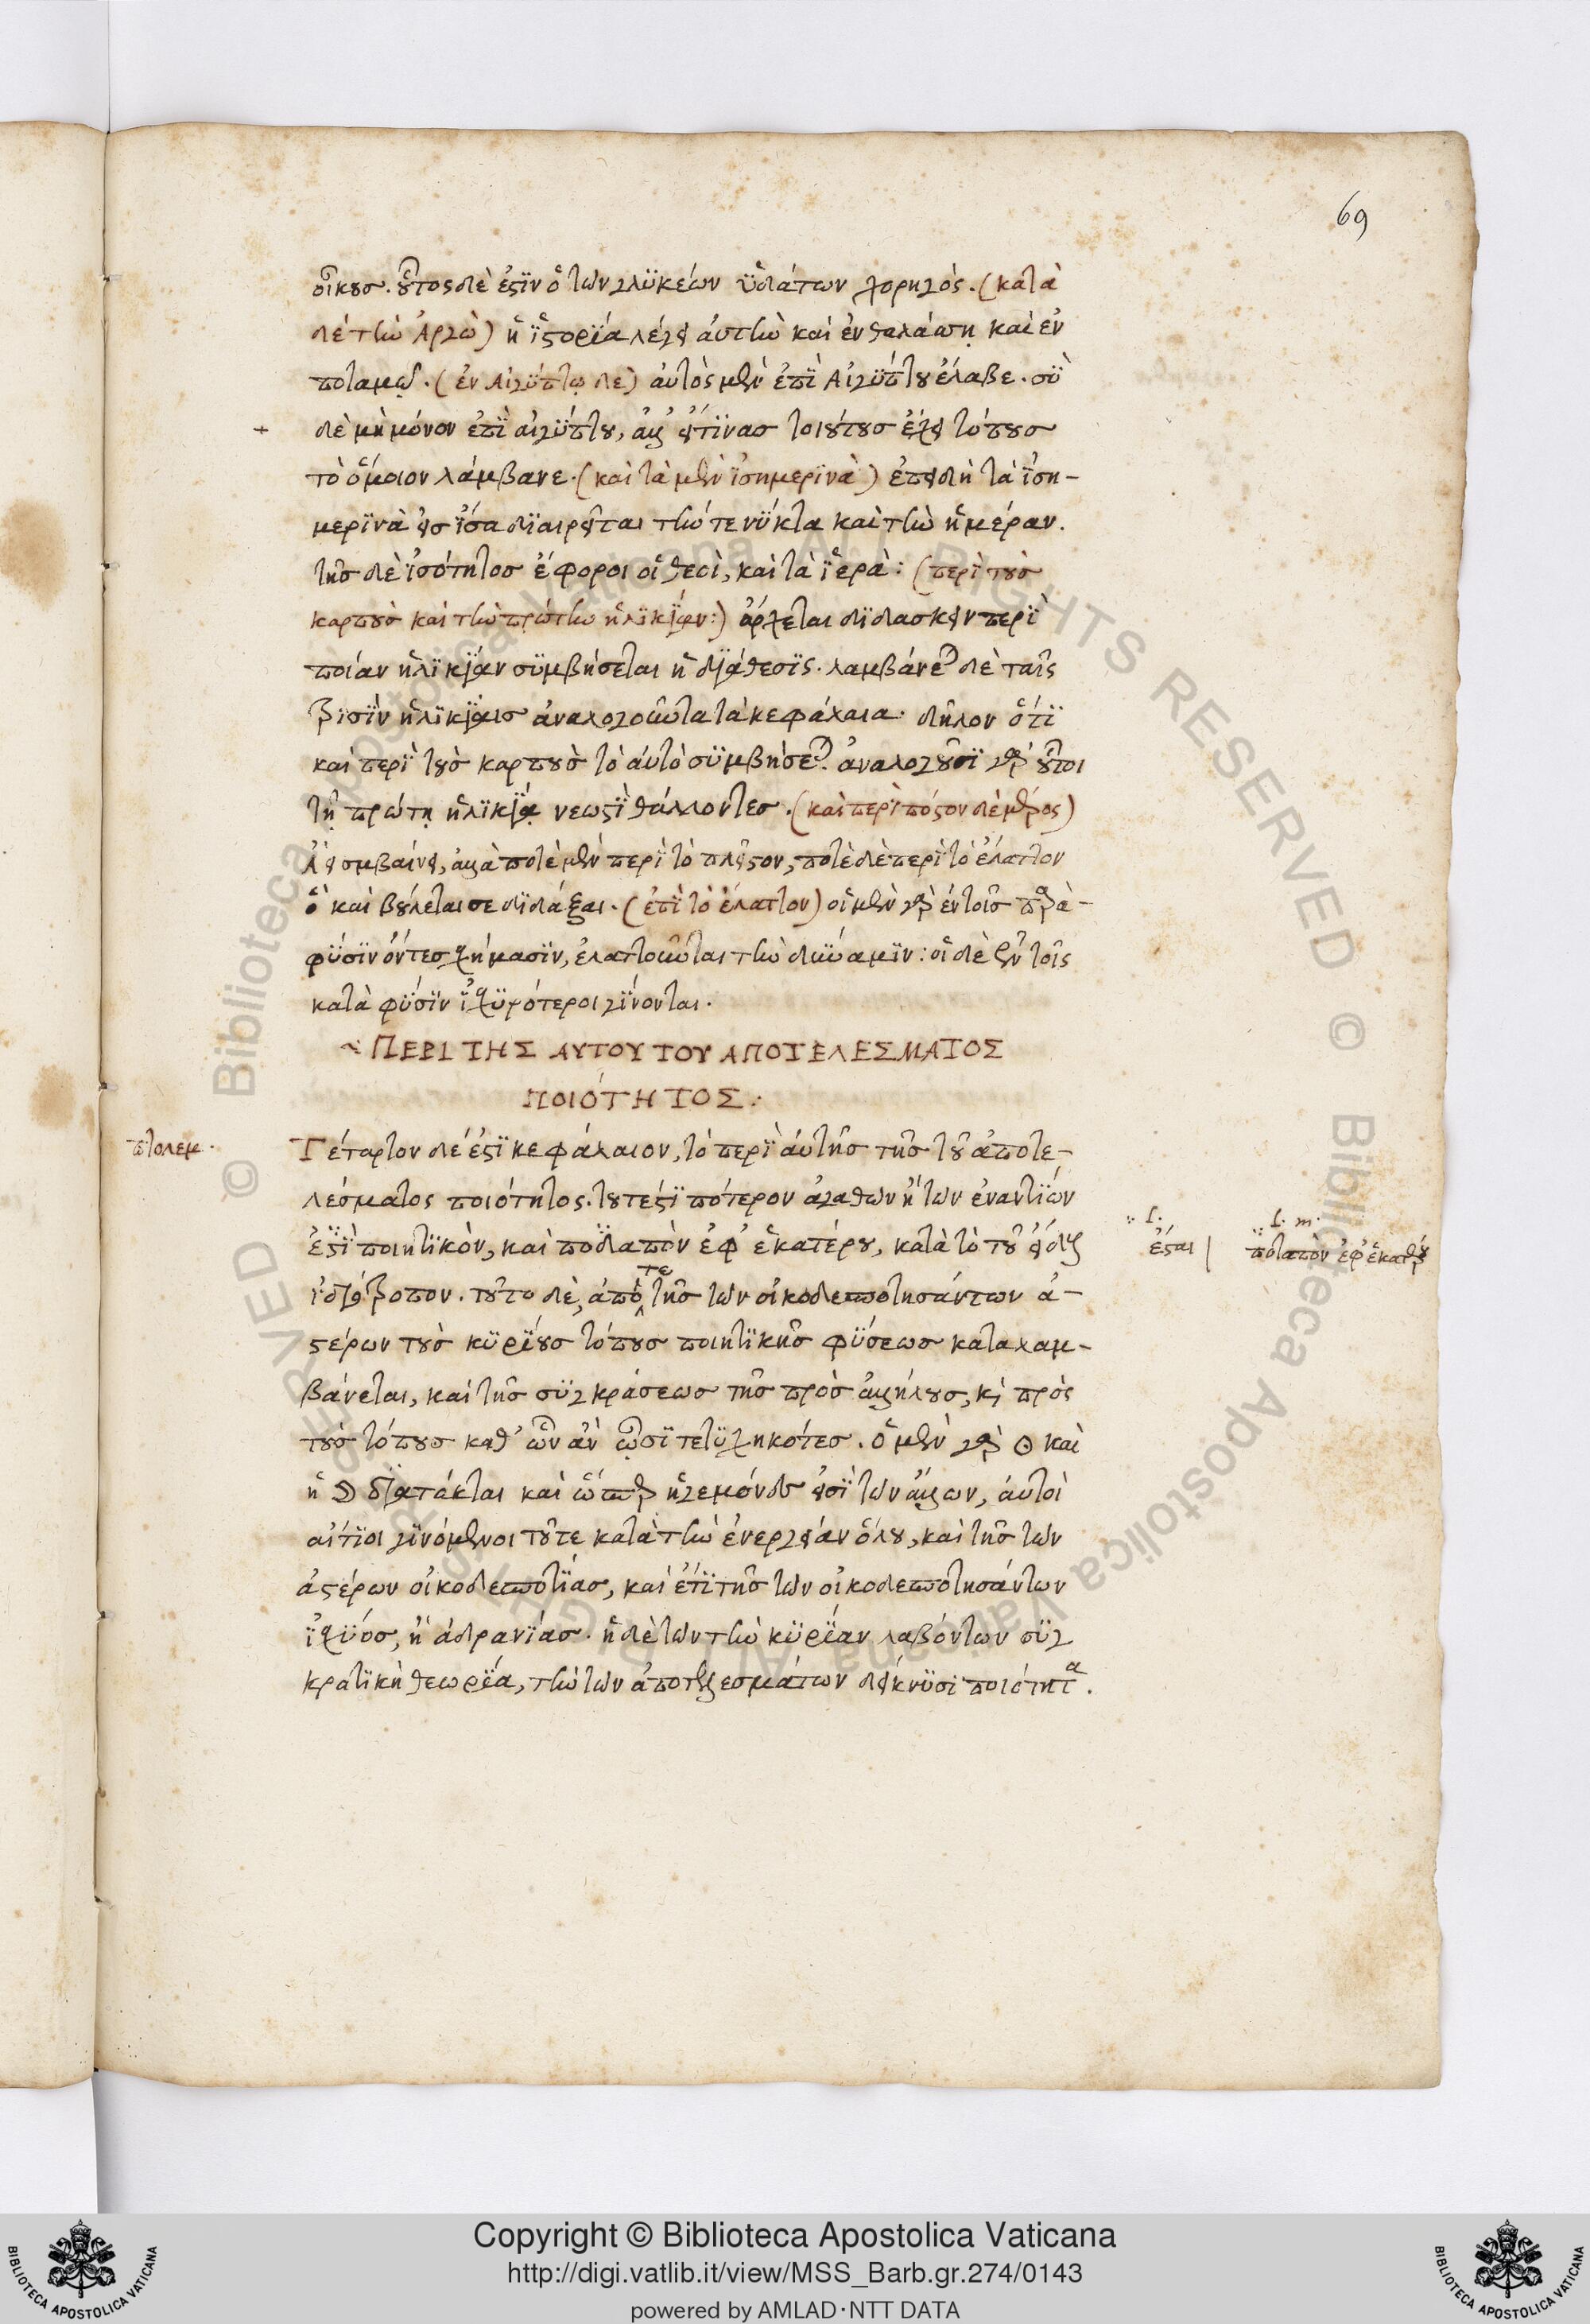 69
οἴκους. οὗτος δὲ ἐστὶν ὁ τῶν γλυκέων ὑδάτων χορηγός. (κατὰ
δὲ τὴν Ἀργὼ) ἡ ἱστορία λέγει αὐτὴν καὶ ἐν θαλάσσῃ καὶ ἐν
ποταμῷ. (ἐν Αἰγύπτῳ δὲ) αὐτὸς μὲν ἐπὶ Αἰγύπτου ἔλαβε. σὺ
+ δὲ μὴ μόνον ἐπὶ αἰγύπτου, ἀλλ' εἴ τινας τοιούτους ἔχει τόπους
τὸ ὅμοιον λάμβανε. (καὶ τὰ μὲν ἰσημερινὰ) ἐπειδὴ τὰ ἰση-
μερινὰ εἰς ἴσα διαιρεῖται τήν τε νύκτα καὶ τὴν ἡμέραν.
τῆς δὲ ἰσότητος ἔφοροι οἱ θεοὶ, καὶ τὰ ἱερὰ: (περὶ τοὺς
καρποὺς καὶ τὴν πρώτην ἡλικίαν:) ἄρχεται διδάσκειν περὶ
ποίαν ἡλικίαν συμβήσεται ἡ διάθεσις. λαμβάνεται δὲ ταῖς
τρισὶν ἡλικίαις ἀναλογοῦντα τὰ κεφάλαια. δῆλον ὅτι
καὶ περὶ τοὺς καρποὺς τὸ αὐτὸ συμβήσεται. ἀναλογοῦσι γὰρ οὗτοι
τῇ πρώτῃ ἡλικίᾳ νεωστὶ θάλλοντες. (καὶ περὶ πόσον δὲ μέρος)
συμβαίνει, ἀλλὰ ποτὲ μὲν περὶ τὸ πλεῖστον, ποτὲ δὲ περὶ τὸ ἔλαττον
ὃ καὶ βούλεταί σε διδάξαι. (ἐπὶ τὸ ἔλαττον) οἱ μὲν γὰρ ἐν τοῖς παρὰ-
φύσιν ὄντες σχήμασιν, ἐλαττοῦνται τὴν δύναμιν: οἱ δὲ ἐν τοῖς
κατὰ φύσιν ἰσχυρότεροι γίνονται.
ΠΕΡΙ ΤΗΣ ΑΥΤΟΥ ΤΟΥ ΑΠΟΤΕΛΕΣΜΑΤΟΣ
ΠΟΙΌΤΗΤΟΣ:
πτολεμ. Τέταρτον δέ ἐστι κεφάλαιον, τὸ περὶ αὐτῆς τῆς τοῦ ἀποτε-
λέσματος ποιότητος. τουτέστι πότερον ἀγαθῶν ἢ τῶν ἐναντίων
ἐστὶ ποιητικὸν, καὶ ποδαπὸν ἐφ' ἑκατέρου, κατὰ τὸ τοῦ εἴδους
ἔσται | ποταπὸν ἐφ' ἑκατέρου
ἰδιότροπον. τοῦτο δὲ, ἀπό τε τῆς τῶν οἰκοδεσποτησάντων ἀ-
στέρων τοὺς κυρίους τόπους ποιητικῆς φύσεως καταλαμ-
βάνεται, καὶ τῆς συγκράσεως τῆς πρὸς ἀλλήλους, καὶ πρὸς
τοὺς τόπους καθ' ὧν ἂν ὦσι τετυχηκότες. ὁ μὲν γὰρ ☉ καὶ
ἡ ☽ διατάκται καὶ ὥσπερ ἡγεμόνες εἰσὶ τῶν ἄλλων, αὐτοὶ
αἴτιοι γινόμενοι τοῦ τε κατὰ τὴν ἐνέργειαν ὅλου, καὶ τῆς τῶν
ἀστέρων οἰκοδεσποτίας, καὶ ἔτι τῆς τῶν οἰκοδεσποτησάντων
ἰσχύος, ἢ ἀδρανίας. ἡ δὲ τῶν τὴν κυρίαν λαβόντων συγ
κρατικὴ θεωρία, τὴν τῶν ἀποτελεσμάτων δείκνυσι ποιότητα.
Copyright © Biblioteca Apostolica Vaticana
http://digi.vatlib.it/view/MSS_Barb.gr.274/0143
powered by AMLAD·NTT DATA
BIBLIOTECA APOSTOLICA VATICANA
BIBLIOTECA APOSTOLICA VATICANA